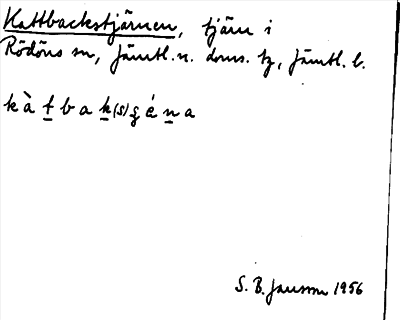 Kattbackstjärnen, tjärn i
Rödöns sn, Jämtl. n. doms. tg, Jämtl. l.
k à t b a k (s) ʂ é n a
S. B. Jansson 1956